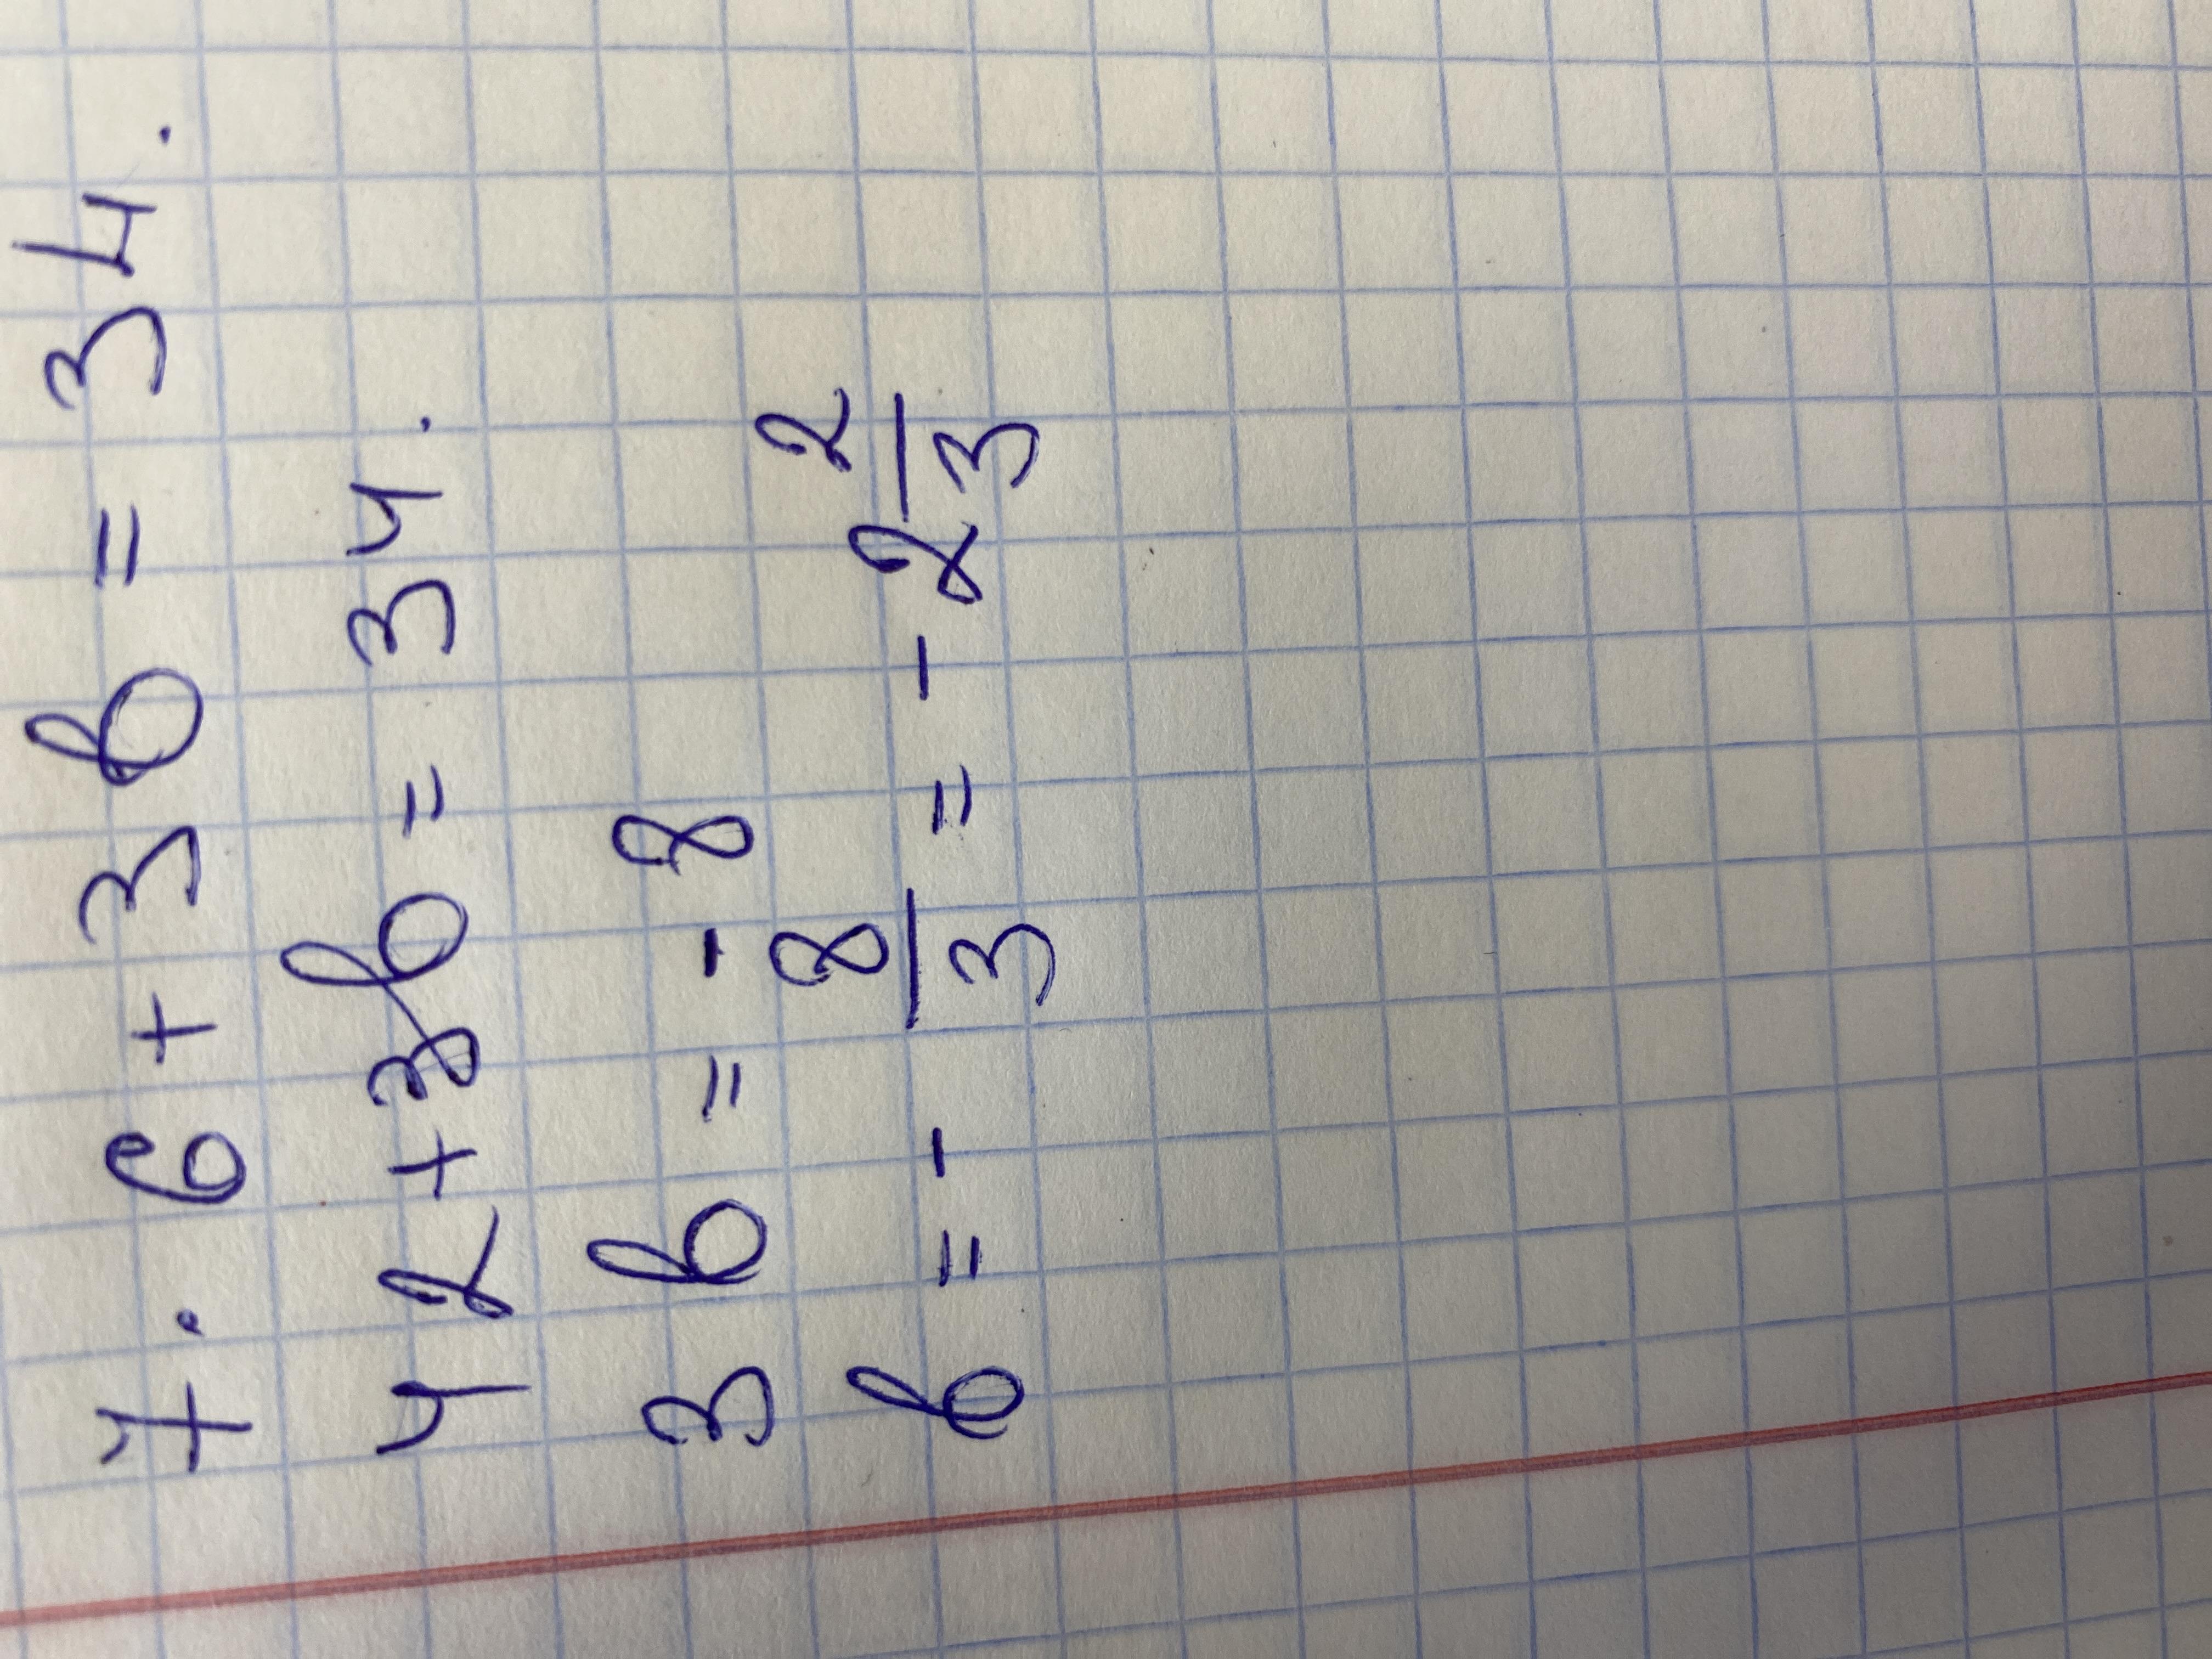 7. 6 + 3в = 34.
42 + 3в = 34.
3в = - 8
в = - 8/3 = - 2 2/3